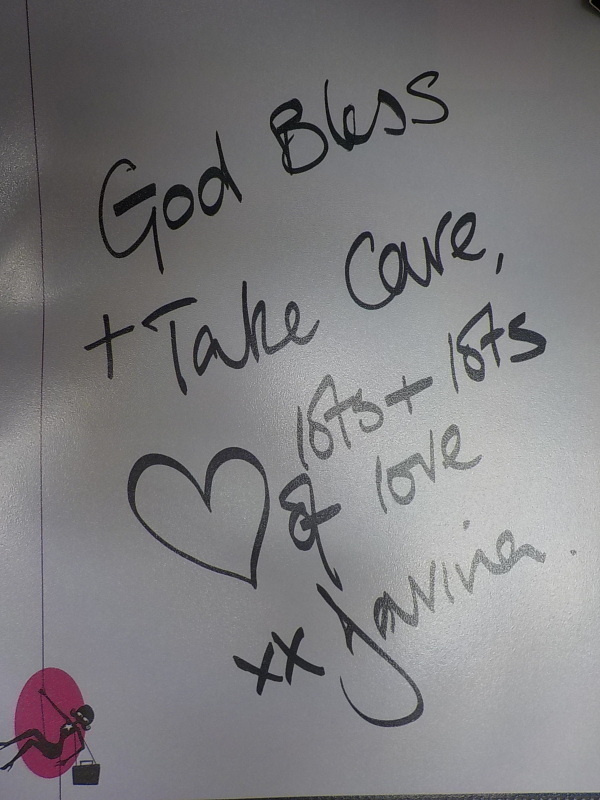 God Bless
+ Take Care,
lots + lots
of love
xx Javina.